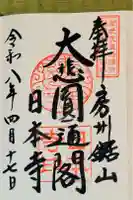 奉拝
房州鋸山
大悲圓通閣
日本寺
令和八年四月十七日